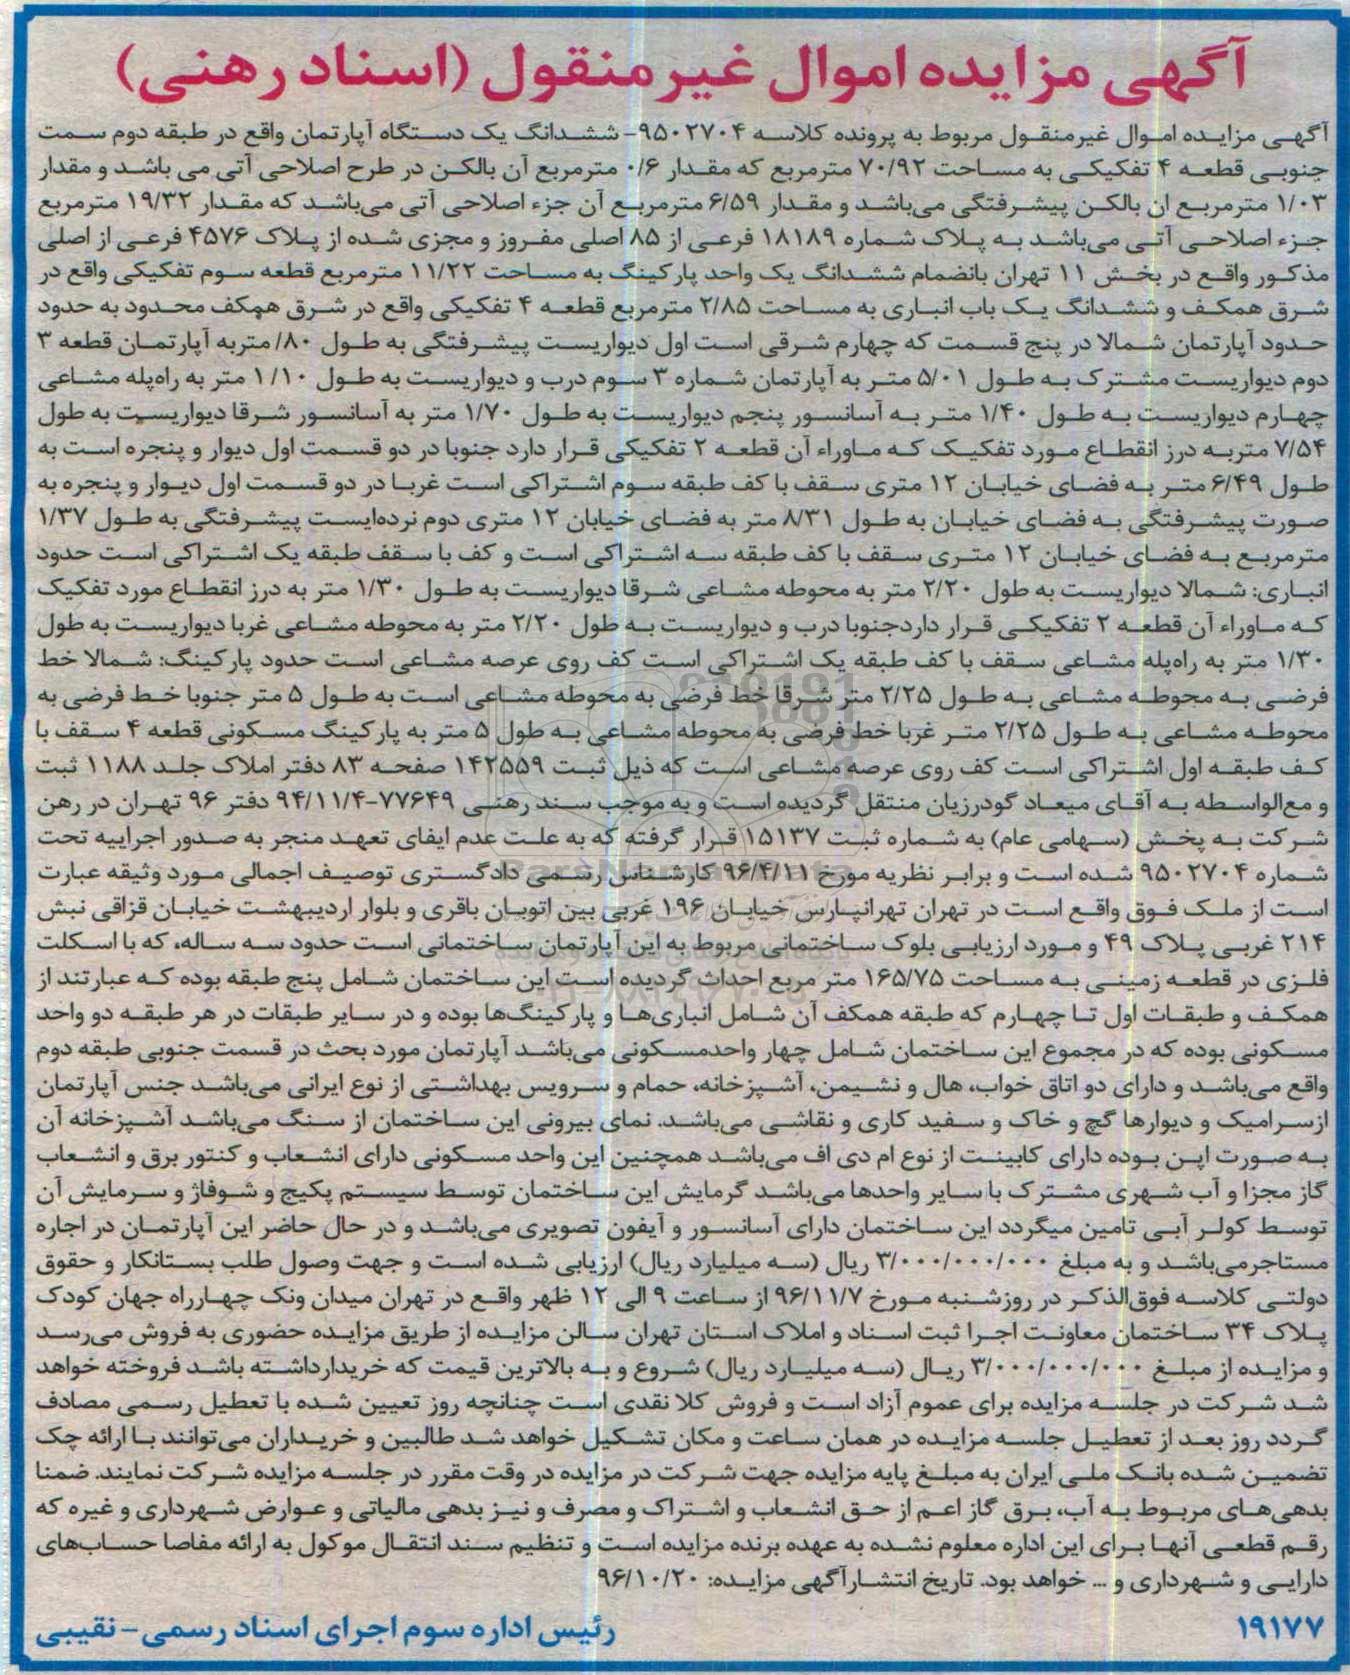 آگهی مزایده اموال غیرمنقول (اسناد رهنی)
آگهی مزایده اموال غیرمنقول مربوط به پرونده کلاسه ۹۵۰۲۷۰۴- ششدانگ یک دستگاه آپارتمان واقع در طبقه دوم سمت
جنوبی قطعه ۴ تفکیکی به مساحت ۷۰/۹۲ مترمربع که مقدار ۰/۶ مترمربع آن بالکن در طرح اصلاحی آتی می باشد و مقدار
۱/۰۳ مترمربع ان بالکن پیشرفتگی می‌باشد و مقدار ۶/۵۹ مترمربع آن جزء اصلاحی آتی می‌باشد که مقدار ۱۹/۳۲ مترمربع
جزء اصلاحی آتی می‌باشد به پلاک شماره ۱۸۱۸۹ فرعی از ۸۵ اصلی مفروز و مجزی شده از پلاک ۴۵۷۶ فرعی از اصلی
مذکور واقع در بخش ۱۱ تهران بانضمام ششدانگ یک واحد پارکینگ به مساحت ۱۱/۲۲ مترمربع قطعه سوم تفکیکی واقع در
شرق همکف و ششدانگ یک باب انباری به مساحت ۲/۸۵ مترمربع قطعه ۴ تفکیکی واقع در شرق همکف محدود به حدود
حدود آپارتمان شمالا در پنج قسمت که چهارم شرقی است اول دیواریست پیشرفتگی به طول ۸۰/ متربه آپارتمان قطعه ۳
دوم دیواریست مشترک به طول ۵/۰۱ متر به آپارتمان شماره ۳ سوم درب و دیواریست به طول ۱/۱۰ متر به راه‌پله مشاعی
چهارم دیواریست به طول ۱/۴۰ متر به آسانسور پنجم دیواریست به طول ۱/۷۰ متر به آسانسور شرقا دیواریست به طول
۷/۵۴ متربه درز انقطاع مورد تفکیک که ماوراء آن قطعه ۲ تفکیکی قرار دارد جنوبا در دو قسمت اول دیوار و پنجره است به
طول ۶/۴۹ متر به فضای خیابان ۱۲ متری سقف با کف طبقه سوم اشتراکی است غربا در دو قسمت اول دیوار و پنجره به
صورت پیشرفتگی به فضای خیابان به طول ۸/۳۱ متر به فضای خیابان ۱۲ متری دوم نرده‌ایست پیشرفتگی به طول ۱/۳۷
مترمربع به فضای خیابان ۱۲ متری سقف با کف طبقه سه اشتراکی است و کف با سقف طبقه یک اشتراکی است حدود
انباری: شمالا دیواریست به طول ۲/۲۰ متر به محوطه مشاعی شرقا دیواریست به طول ۱/۳۰ متر به درز انقطاع مورد تفکیک
که ماوراء آن قطعه ۲ تفکیکی قرار داردجنوبا درب و دیواریست به طول ۲/۲۰ متر به محوطه مشاعی غربا دیواریست به طول
۱/۳۰ متر به راه‌پله مشاعی سقف با کف طبقه یک اشتراکی است کف روی عرصه مشاعی است حدود پارکینگ: شمالا خط
فرضی به محوطه مشاعی به طول ۲/۲۵ متر شرقا خط فرضی به محوطه مشاعی است به طول ۵ متر جنوبا خط فرضی به
محوطه مشاعی به طول ۲/۲۵ متر غربا خط فرضی به محوطه مشاعی به طول ۵ متر به پارکینگ مسکونی قطعه ۴ سقف با
کف طبقه اول اشتراکی است کف روی عرصه مشاعی است که ذیل ثبت ۱۴۲۵۵۹ صفحه ۸۳ دفتر املاک جلد ۱۱۸۸ ثبت
و مع‌الواسطه به آقای میعاد گودرزیان منتقل گردیده است و به موجب سند رهنی ۷۷۶۴۹-۹۴/۱۱/۴ دفتر ۹۶ تهران در رهن
شرکت به پخش (سهامی عام) به شماره ثبت ۱۵۱۳۷ قرار گرفته که به علت عدم ایفای تعهد منجر به صدور اجراییه تحت
شماره ۹۵۰۲۷۰۴ شده است و برابر نظریه مورخ ۹۶/۴/۱۱ کارشناس رسمی دادگستری توصیف اجمالی مورد وثیقه عبارت
است از ملک فوق واقع است در تهران تهرانپارس خیابان ۱۹۶ غربی بین اتوبان باقری و بلوار اردیبهشت خیابان قزاقی نبش
۲۱۴ غربی پلاک ۴۹ و مورد ارزیابی بلوک ساختمانی مربوط به این آپارتمان ساختمانی است حدود سه ساله، که با اسکلت
فلزی در قطعه زمینی به مساحت ۱۶۵/۷۵ متر مربع احداث گردیده است این ساختمان شامل پنج طبقه بوده که عبارتند از
همکف و طبقات اول تا چهارم که طبقه همکف آن شامل انباری‌ها و پارکینگ‌ها بوده و در سایر طبقات در هر طبقه دو واحد
مسکونی بوده که در مجموع این ساختمان شامل چهار واحدمسکونی می‌باشد آپارتمان مورد بحث در قسمت جنوبی طبقه دوم
واقع می‌باشد و دارای دو اتاق خواب، هال و نشیمن، آشپزخانه، حمام و سرویس بهداشتی از نوع ایرانی می‌باشد جنس آپارتمان
ازسرامیک و دیوارها گچ و خاک و سفید کاری و نقاشی می‌باشد. نمای بیرونی این ساختمان از سنگ می‌باشد آشپزخانه آن
به صورت اپن بوده دارای کابینت از نوع ام دی اف می‌باشد همچنین این واحد مسکونی دارای انشعاب و کنتور برق و انشعاب
گاز مجزا و آب شهری مشترک با سایر واحدها می‌باشد گرمایش این ساختمان توسط سیستم پکیج و شوفاژ و سرمایش آن
توسط کولر آبی تامین میگردد این ساختمان دارای آسانسور و آیفون تصویری می‌باشد و در حال حاضر این آپارتمان در اجاره
مستاجرمی‌باشد و به مبلغ ۳/۰۰۰/۰۰۰/۰۰۰ ریال (سه میلیارد ریال) ارزیابی شده است و جهت وصول طلب بستانکار و حقوق
دولتی کلاسه فوق‌الذکر در روزشنبه مورخ ۹۶/۱۱/۷ از ساعت ۹ الی ۱۲ ظهر واقع در تهران میدان ونک چهارراه جهان کودک
پلاک ۳۴ ساختمان معاونت اجرا ثبت اسناد و املاک استان تهران سالن مزایده از طریق مزایده حضوری به فروش می‌رسد
و مزایده از مبلغ ۳/۰۰۰/۰۰۰/۰۰۰ ریال (سه میلیارد ریال) شروع و به بالاترین قیمت که خریدارداشته باشد فروخته خواهد
شد شرکت در جلسه مزایده برای عموم آزاد است و فروش کلا نقدی است چنانچه روز تعیین شده با تعطیل رسمی مصادف
گردد روز بعد از تعطیل جلسه مزایده در همان ساعت و مکان تشکیل خواهد شد طالبین و خریداران می‌توانند با ارائه چک
تضمین شده بانک ملی ایران به مبلغ پایه مزایده جهت شرکت در مزایده در وقت مقرر در جلسه مزایده شرکت نمایند. ضمنا
بدهی‌های مربوط به آب، برق گاز اعم از حق انشعاب و اشتراک و مصرف و نیز بدهی مالیاتی و عوارض شهرداری و غیره که
رقم قطعی آنها برای این اداره معلوم نشده به عهده برنده مزایده است و تنظیم سند انتقال موکول به ارائه مفاصا حساب‌های
دارایی و شهرداری و ... خواهد بود. تاریخ انتشارآگهی مزایده: ۹۶/۱۰/۲۰
۱۹۱۷۷
رئیس اداره سوم اجرای اسناد رسمی - نقیبی